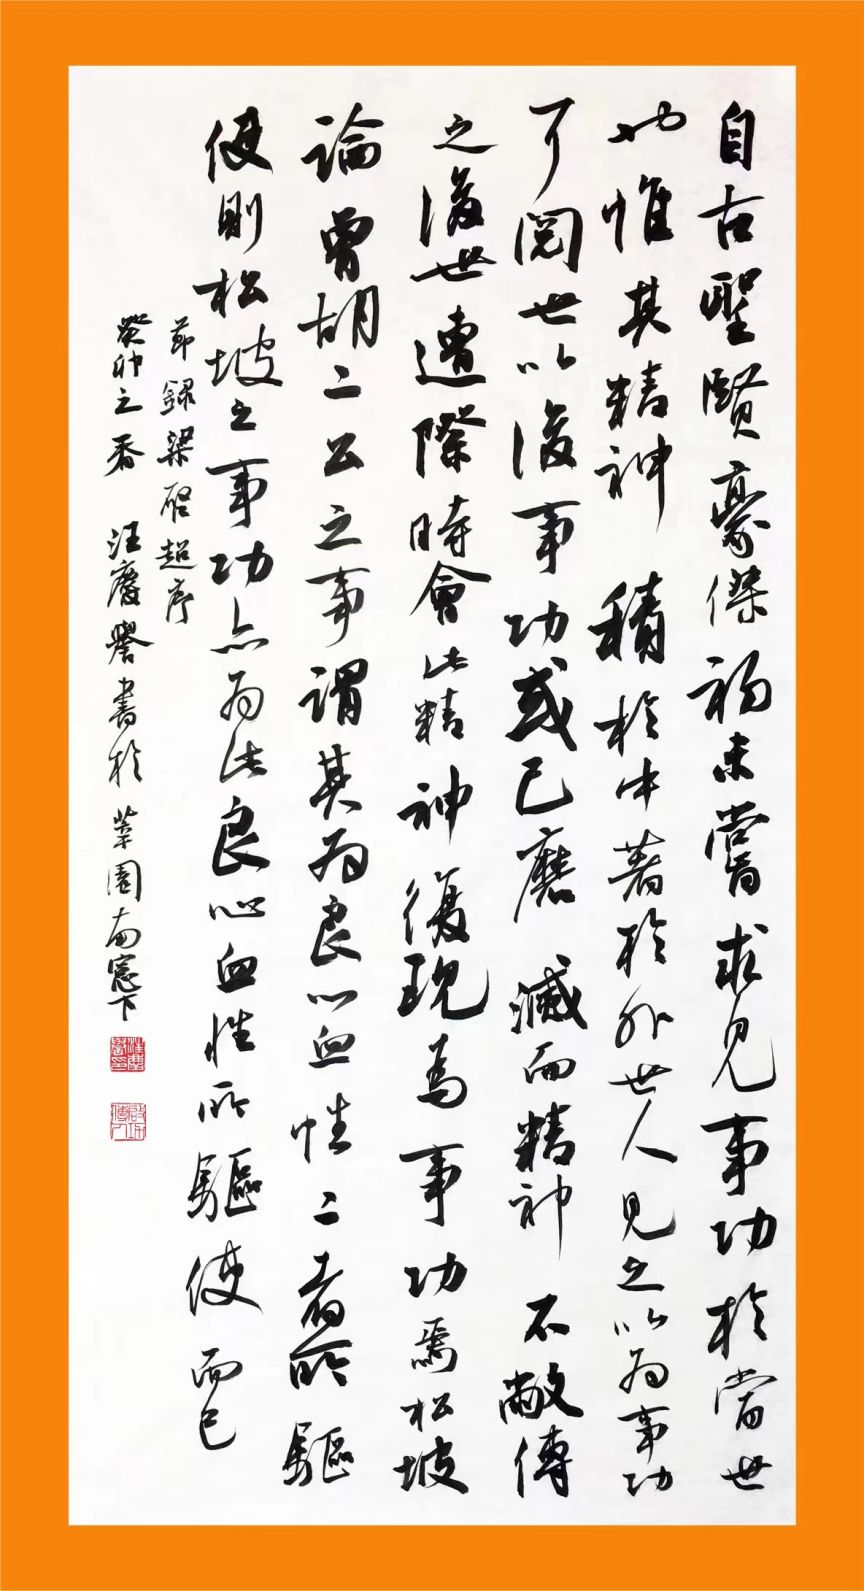 自古聖賢豪傑初未嘗求見事功於當世
也惟其精神積於中著於外世人見之以為事功
耳閱世以後事功或已磨滅而精神不敝傳
之後世遭際時會此精神復現為事功焉松坡
論曾胡二公之事謂其為良心血性二者所驅
使則松坡之事功亦為此良心血性所驅使而已
節錄梁啓超序
癸卯之春 汪慶譽書於莘園南窗下